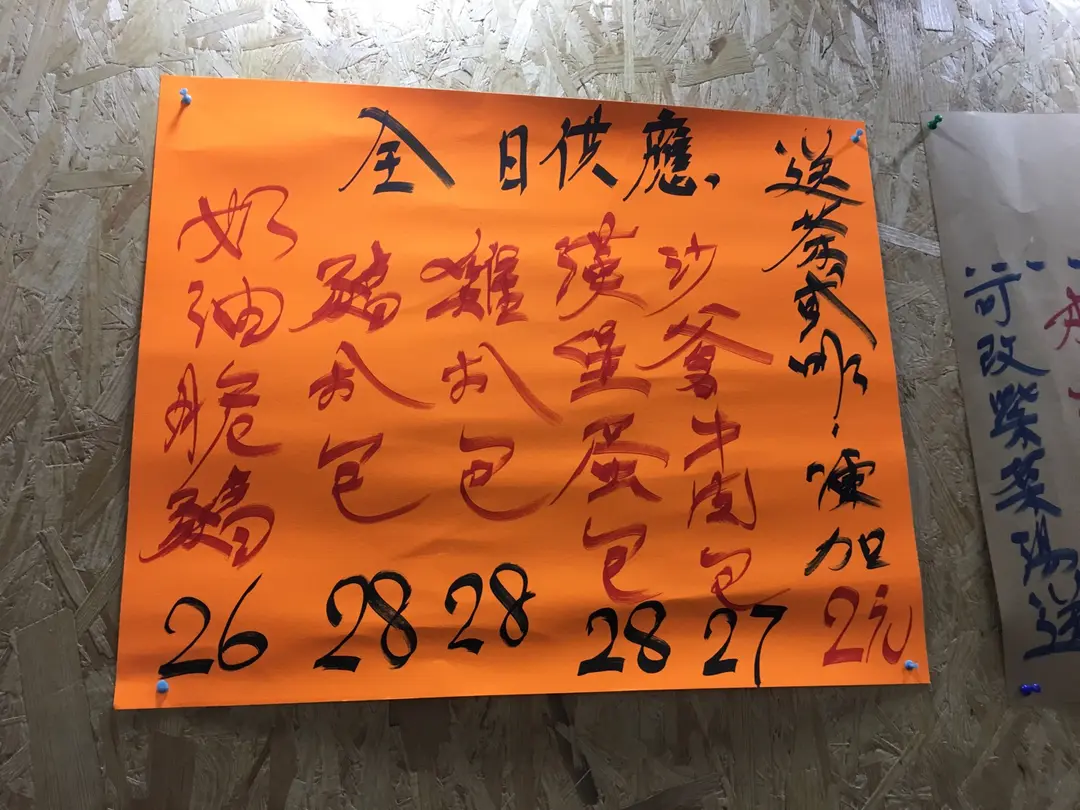 全日供應
送茶或啡,凍加2元
沙爹牛肉包 27
漢堡蛋包 28
雞扒包 28
豬扒包 28
奶油脆豬 26
可改紫菜湯送